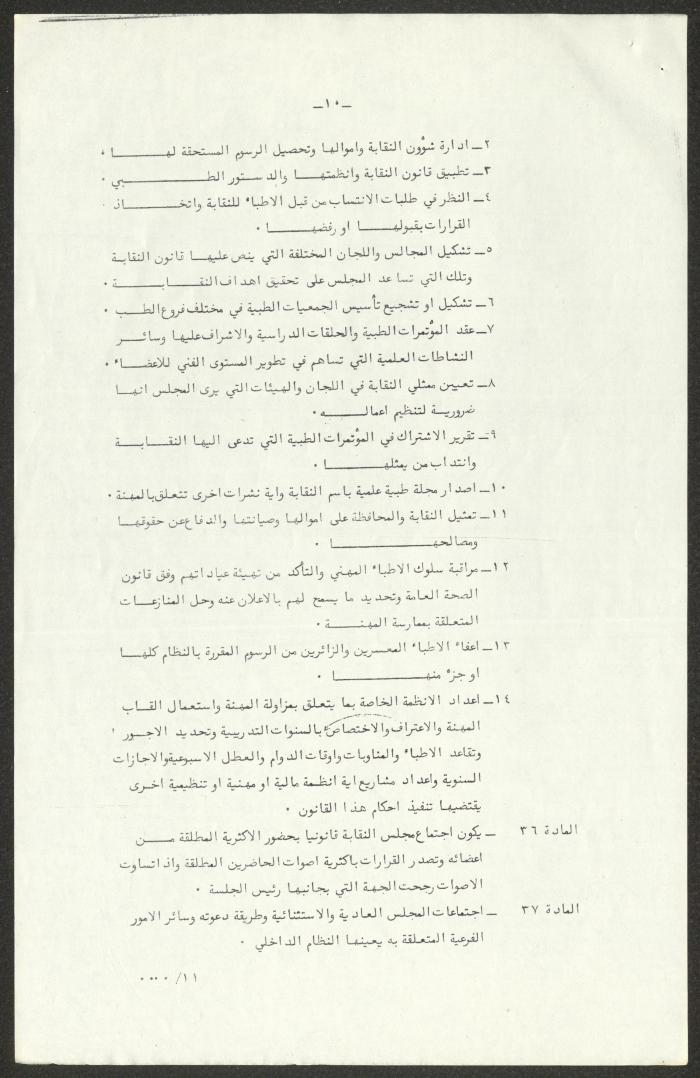 ـ ١٠ ـ
٢ـ ادارة شؤون النقابة واموالها وتحصيل الرسوم المستحقة لهــــا ٠
٣ـ تطبيق قانون النقابة وانظمتهـــا والدستور الطـــــبي ٠
٤ـ النظر في طلبات الانتساب من قبل الاطباء للنقابة واتخـــاذ
القرارات بقبولهـــا او رفضهـــا ٠
٥ـ تشكيل المجالس واللجان المختلفة التي ينص عليهـا قانون النقابة
وتلك التي تساعد المجلس على تحقيق اهداف النقـــابـــة ٠
٦ـ تشكيل او تشجيع تأسيس الجمعيات الطبية في مختلف فروع الطـب ٠
٧ـ عقد المؤتمرات الطبية والحلقات الدراسية والاشراف عليها وسائـــر
النشاطات العلمية التي تساهم في تطوير المستوى الفني للاعضــاء ٠
٨ـ تعيين ممثلي النقابة في اللجان والهيئات التي يرى المجلس انهـا
ضرورية لتنظيم اعمالـــه ٠
٩ـ تقرير الاشتراك في المؤتمرات الطبية التي تدعى اليها النقــابــة
وانتداب من يمثلهـــا ٠
١٠ـ اصدار مجلة طبية علمية باسم النقابة واية نشرات اخرى تتعلق بالمهنة ٠
١١ـ تمثيل النقابة والمحافظة على اموالها وصيانتها والدفاع عن حقوقهـا
ومصالحهـــــا ٠
١٢ـ مراقبة سلوك الاطباء المهني والتأكد من تهيئة عياداتهم وفق قانون
الصحة العامة وتحديد ما يسمح لهم بالاعلان عنه وحل المنازعــات
المتعلقة بممارسة المهنـــة ٠
١٣ـ اعفاء الاطباء المعسرين والزائرين من الرسوم المقررة بالنظام كلهــا
او جزء منهـــــا ٠
١٤ـ اعداد الانظمة الخاصة بما يتعلق بمزاولة المهنة واستعمال القــاب
المهنة والاعتراف والاختصاص بالسنوات التدريبية وتحديد الاجــور
وتقاعد الاطباء والمناوبات واوقات الدوام والعطل الاسبوعية والاجازات
السنوية واعداد مشاريع اية انظمة مالية او مهنية او تنظيمية اخـرى
يقتضيها تنفيذ احكام هذا القانون ٠
المادة ٣٦ ـ يكون اجتماع مجلس النقابة قانونيا بحضور الاكثرية المطلقة مـــن
اعضائه وتصدر القرارات باكثرية اصوات الحاضرين المطلقة واذا تساوت
الاصوات رجحت الجهة التي بجانبها رئيس الجلسة ٠
المادة ٣٧ ـ اجتماعات المجلس العادية والاستثنائية وطريقة دعوته وسائر الامور
الفرعية المتعلقة به يعينها النظام الداخلي ٠
١١/ ٠٠٠٠